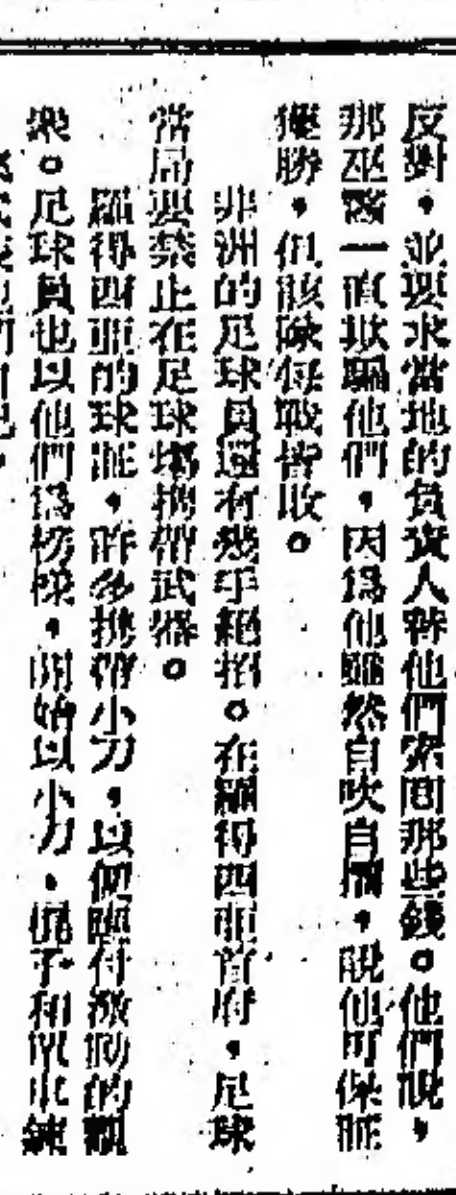 反對，並要求當地的負責人替他們索回那些錢。他們說，
那巫醫一直欺騙他們，因爲他雖然自吹自擂，說他可保証
獲勝，但該隊每戰皆敗。
非洲的足球員還有幾手絕招。在羅得西亞首府，足球
當局要禁止在足球場攜帶武器。
羅得西亞的球迷，許多攜帶小刀，以便應付激動的觀
衆。足球員也以他們爲榜樣，開始以小刀，棍子和脚車鍊